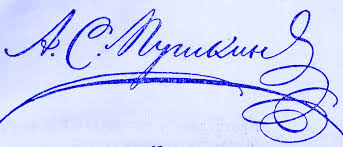 А. С. Пушкин